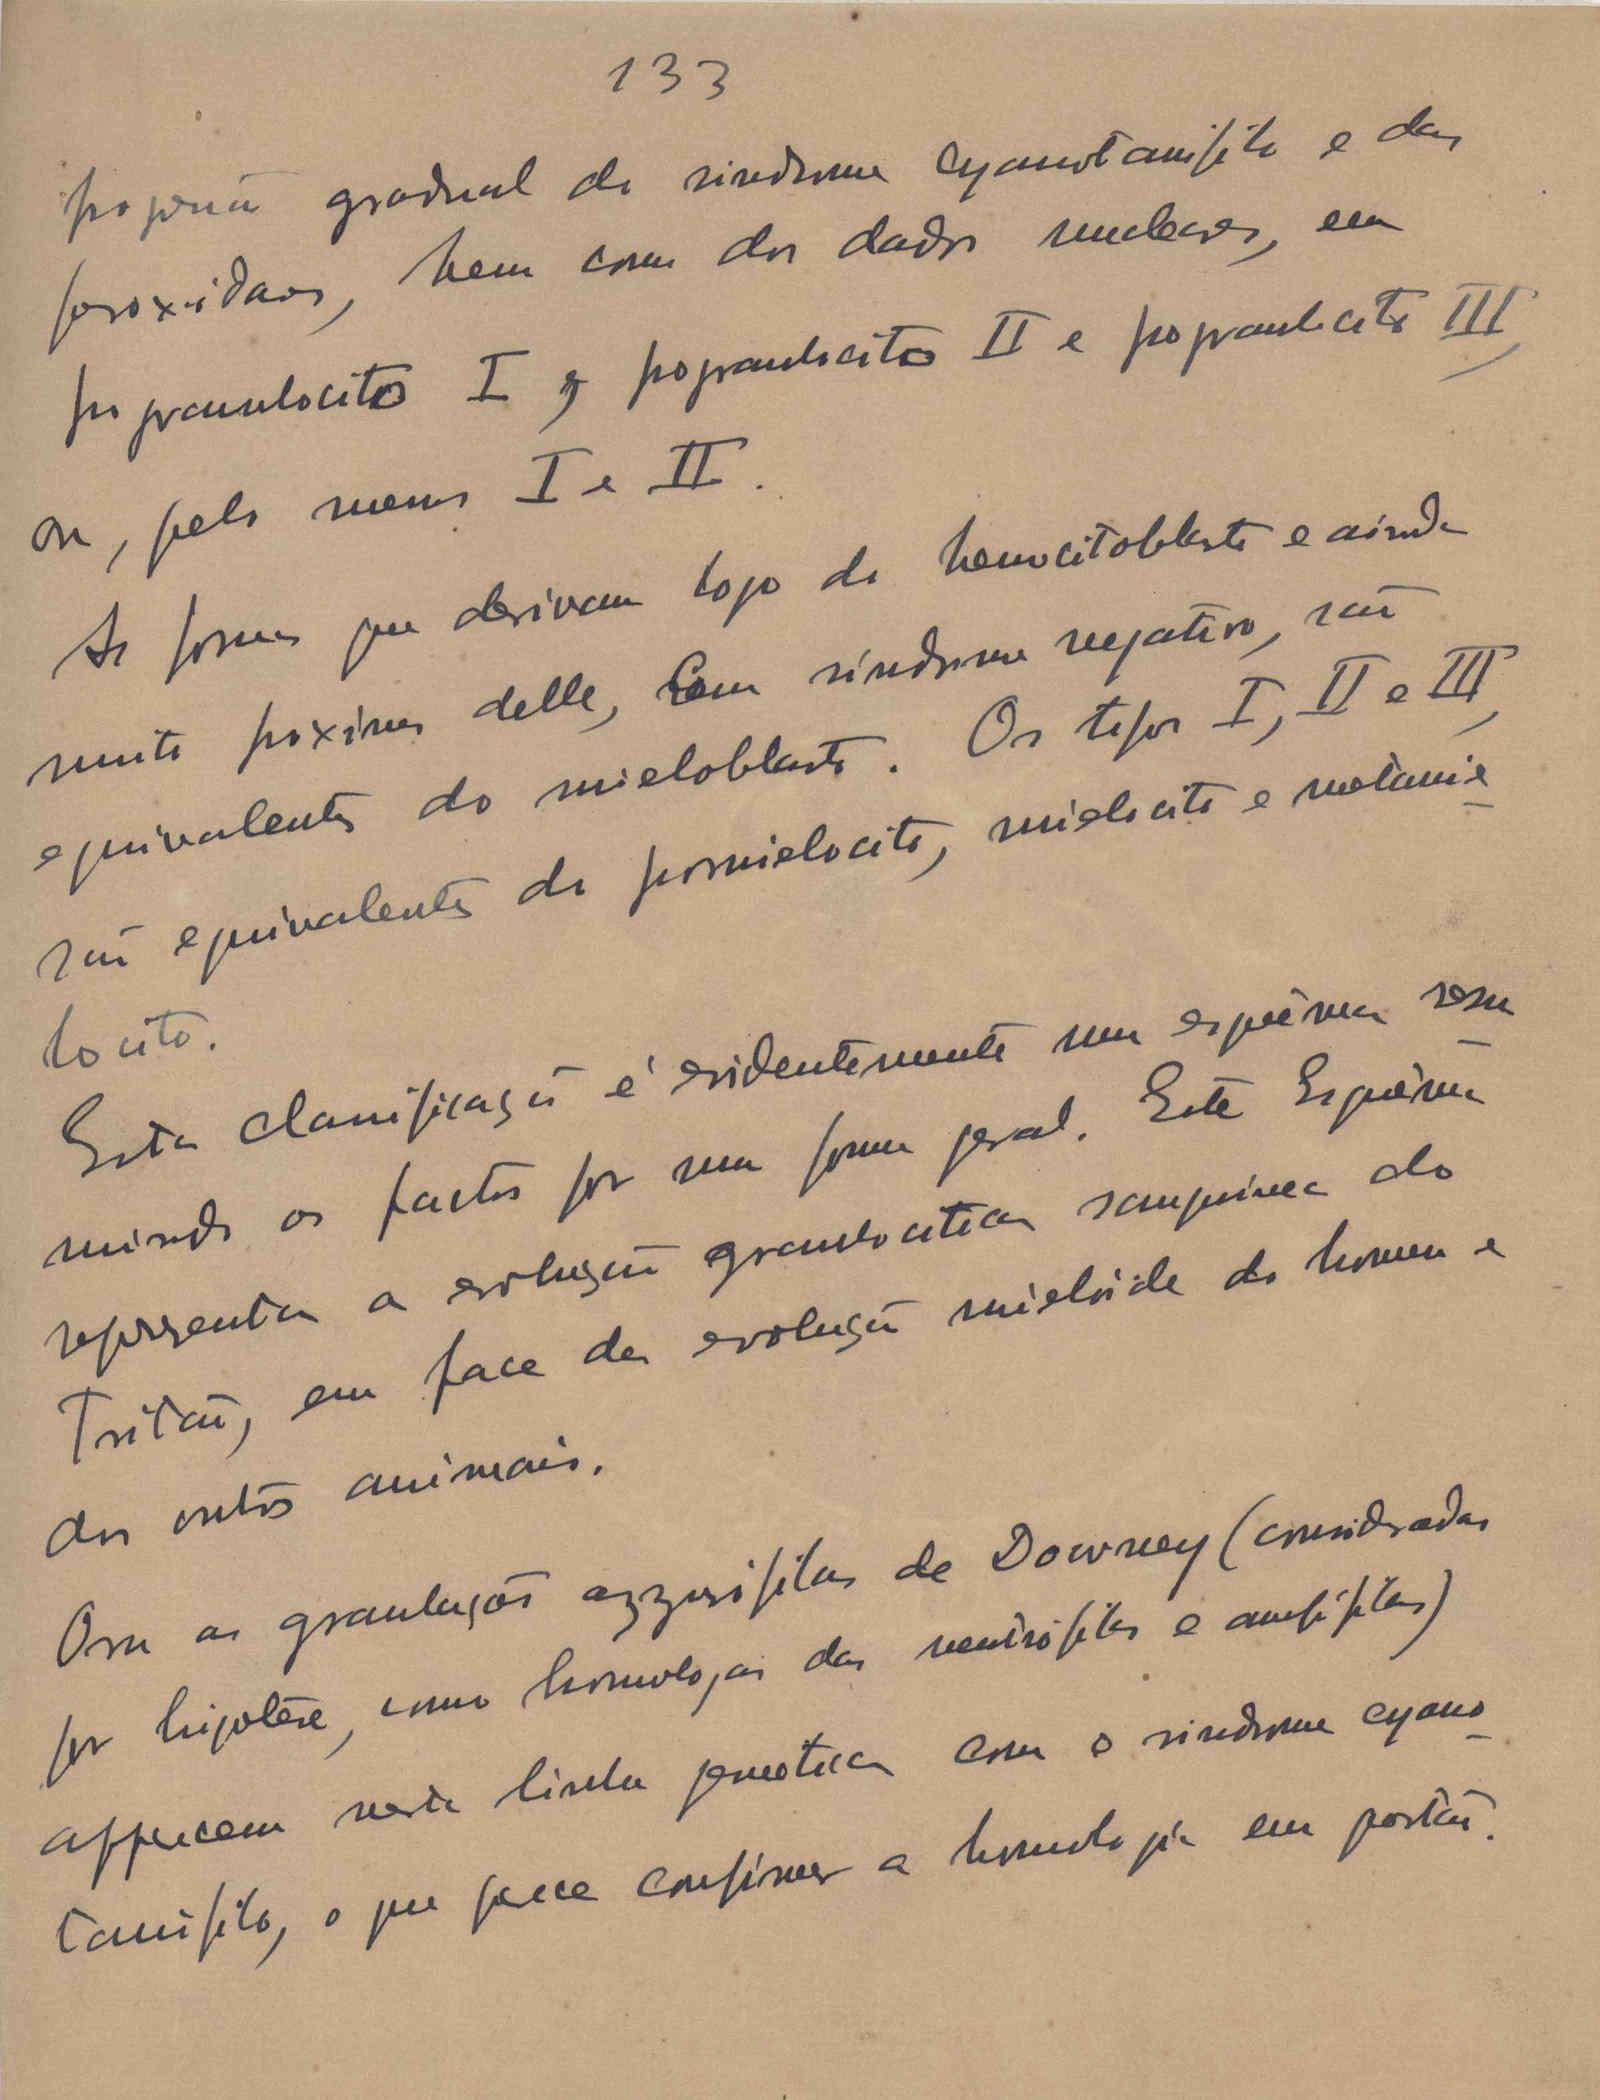 133
progressão gradual do sindrome cyanotanifilo e das
peroxidases, bem como dos dados nucleares, em
progranulocito I, progranulocito II e progranulocito III,
ou, pelo menos I e II.
As formas que derivam logo do hemocitoblasto e ainda
muito proximas delle, com sindrome negativo, são
equivalentes do mieloblasto. Os tipos I, II e III,
são equivalentes do promielocito, mielocito e metamie
locito.
Esta classificação é evidentemente um esquêma resu
mindo os factos por uma forma geral. Este Esquêma
representa a evolução granulocitica sanguinea do
Tritão, em face da evolução mielóide do homem e
dos outros animais.
Ora as granulações azzurófilas de Downey (consideradas
por hipotese, como homologas das neutrófilas e anfófilas)
apparecem nesta linha genetica com o sindrome cyano
tanifilo, o que parece confirmar a homologia em questão.